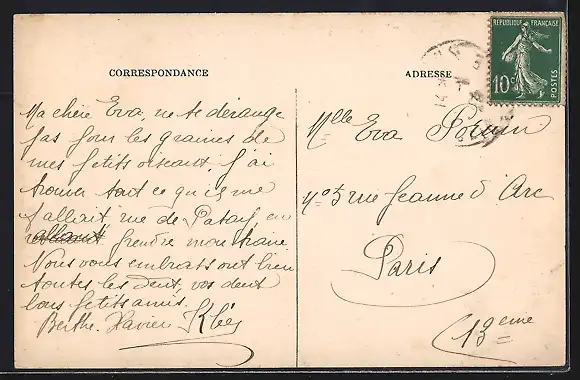 CORRESPONDANCE
Ma chère Eva, ne te dérange
pas pour les graines de
mes petits oiseaux, j'ai
trouver tout ce qu'il me
falliait rue de Patay en
allant prendre mon traine
Nous vous embrassont bien
toutes les deut, vos deut
bons petits amis.
Berthe. Xavier Kléj
ADRESSE
REPUBLIQUE FRANÇAISE
10c
POSTES
Mlle Eva
N° 5 rue Jeanne d'Arc
Paris
13eme